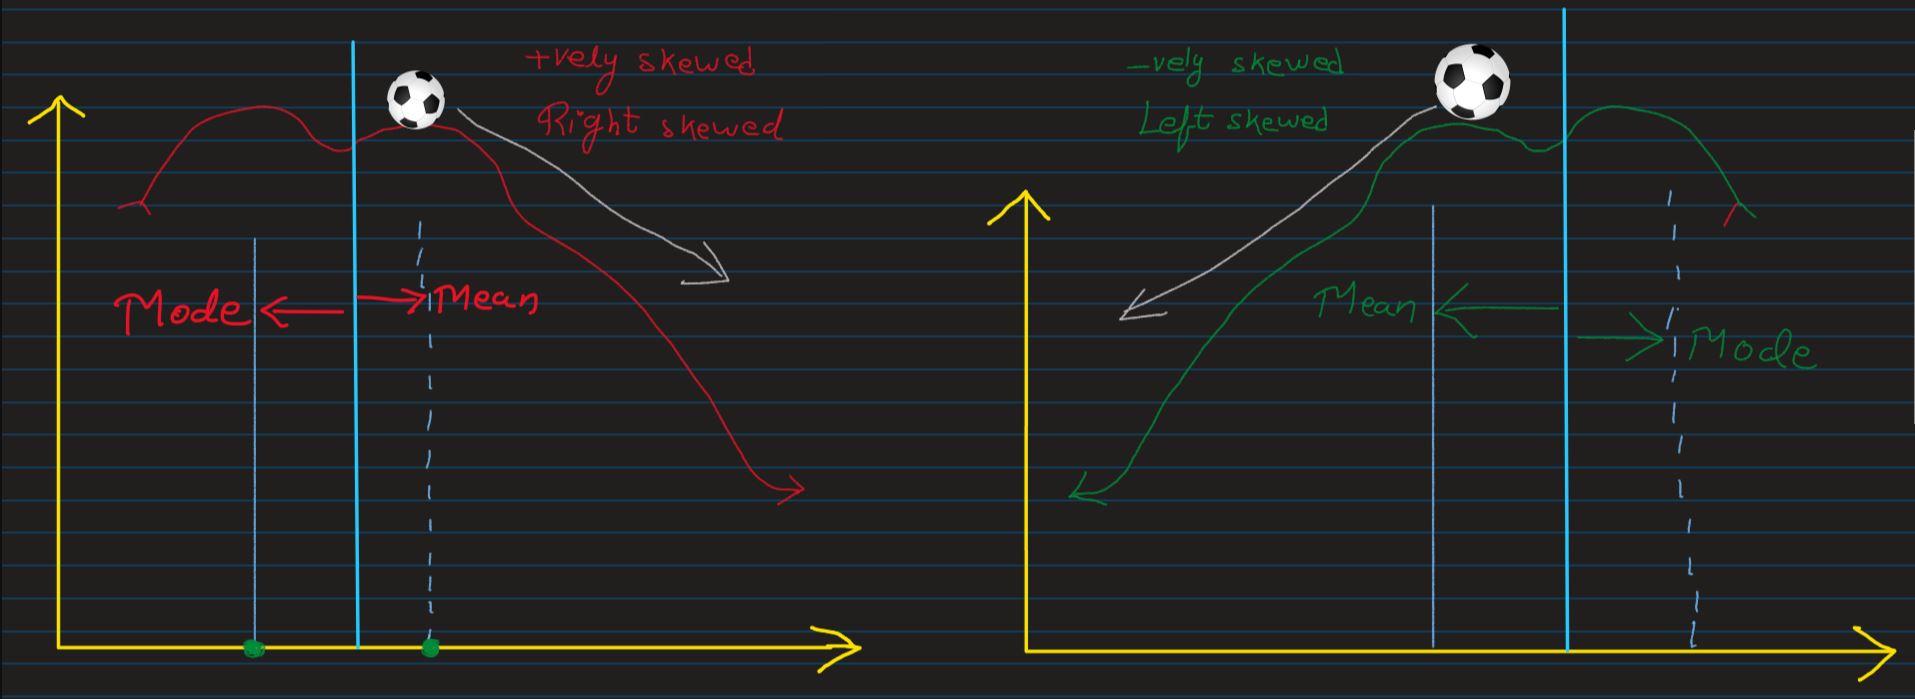 +vely skewed
Right skewed
Mode
Mean
-vely skewed
Left skewed
Mean
Mode